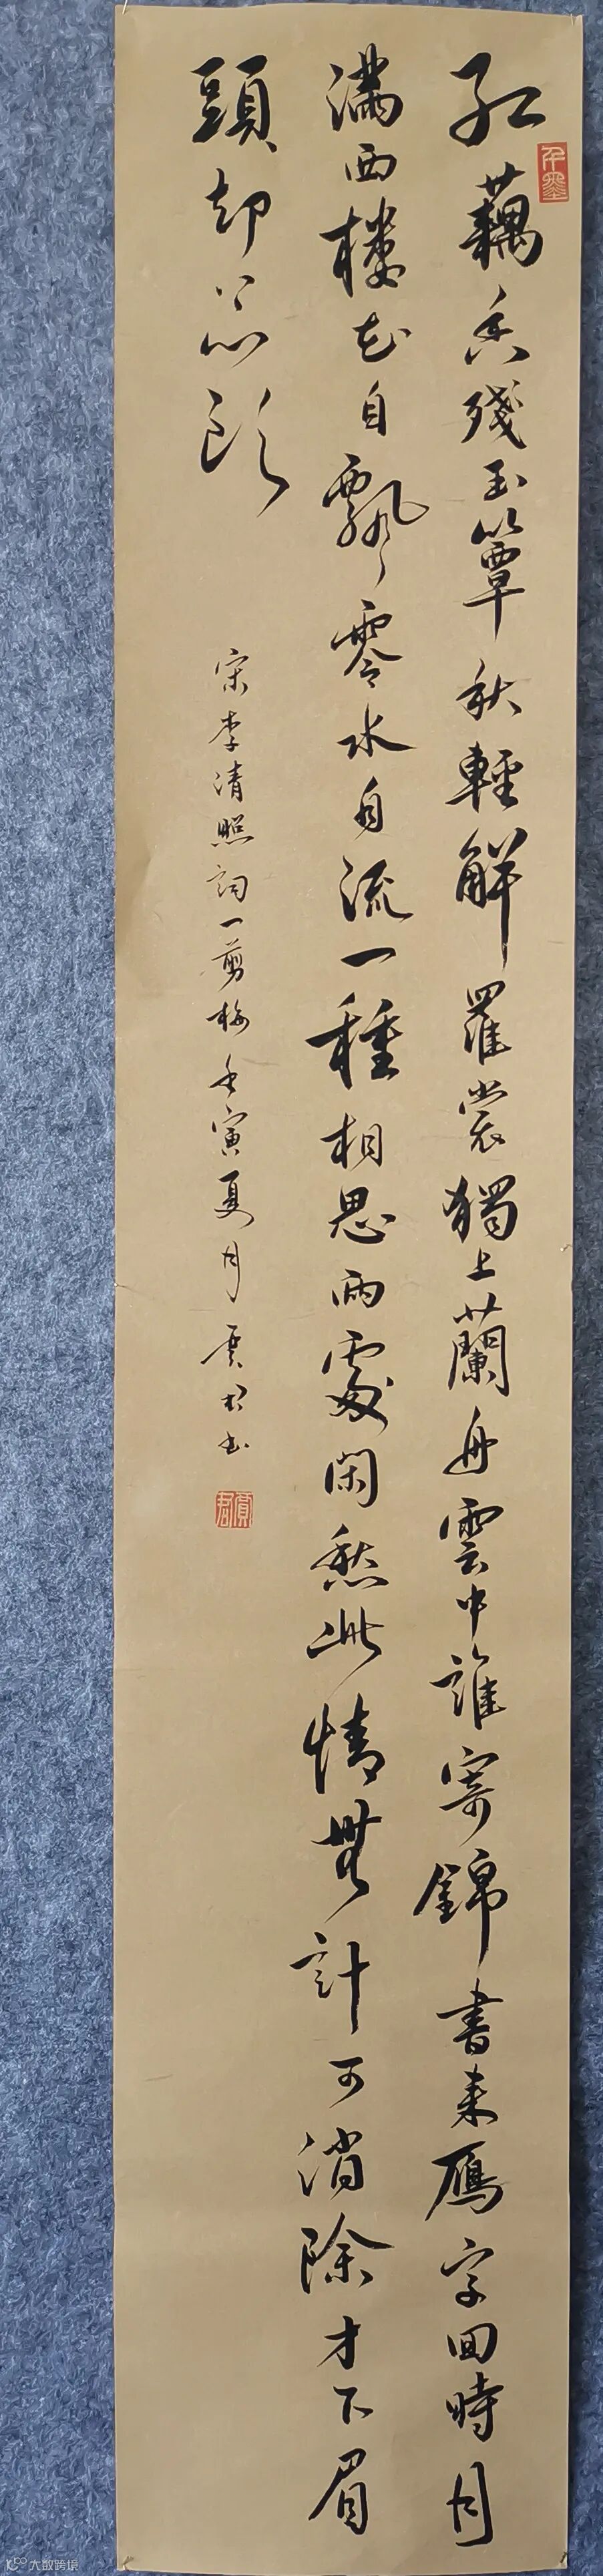 红藕香殘玉簟秋輕解羅裳獨上蘭舟雲中誰寄錦書来雁字回時月
滿西楼花自飄零水自流一種相思兩處閑愁此情無計可消除才下眉
頭却上心頭
宋李清照詞一剪梅壬寅夏月书
大数跨境